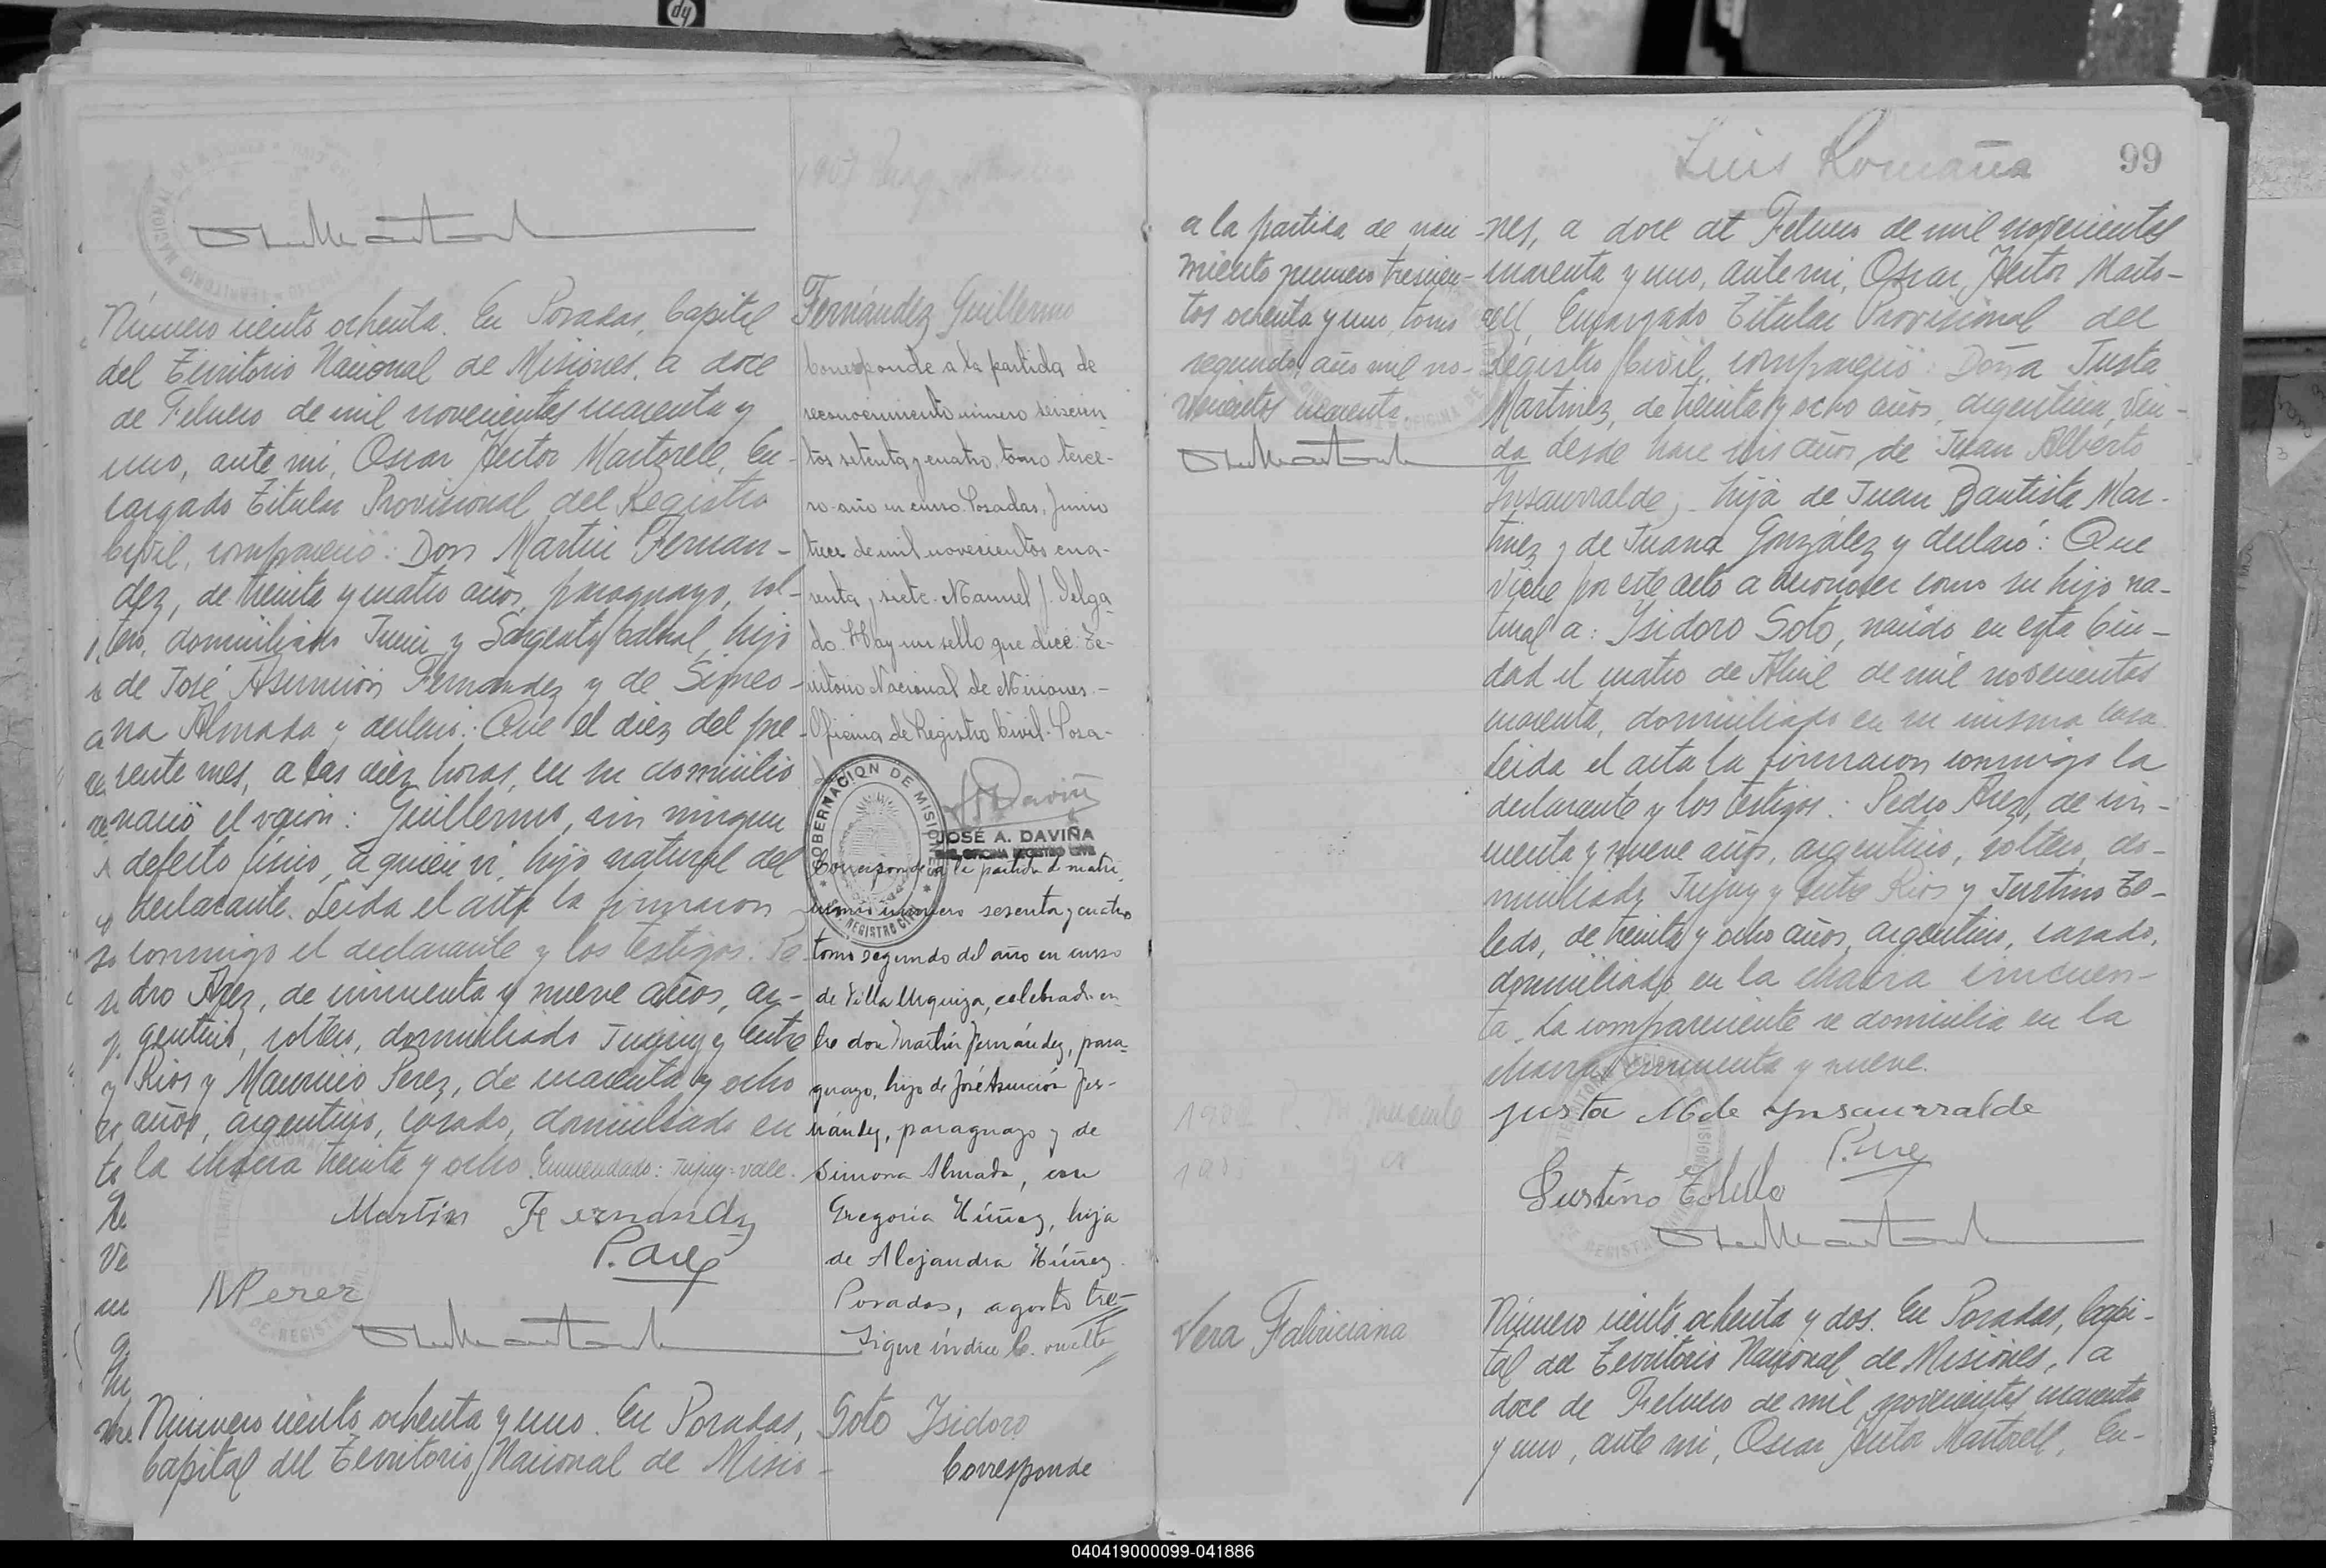 Número ciento ochenta. En Posadas, Capital
del Territorio Nacional de Misiones, a doce
de Febrero de mil novecientos cuarenta y
uno, ante mi, Oscar Hector Martorell, En-
cargado Titular Provisional del Registro
Civil, compareció: Don Martin Fernan-
dez, de treinta y cuatro años, paraguayo, sol-
tero, domiciliado Junin y Sargento Cabral, hijo
de José Asunción Fernandez y de Simeo-
na Almada y declaró: Que el diez del pre-
sente mes, a las diez horas, en su domicilio
nació el varon: Guillermo, sin ningun
defecto fisico, a quien vi, hijo natural del
declarante. Leida el acta la firmaron
conmigo el declarante y los testigos: Pe-
dro Arez, de cincuenta y nueve años, ar-
gentino, soltero, domiciliado Jujuy y Entre
Rios y Mauricio Perez, de cuarenta y ocho
años, argentino, casado, domiciliado en
la chacra treinta y ocho. Enmendado: Jujuy=vale.
Martin Fernandez
P. Arez
MPerez
Fernández Guillermo
Corresponde a la partida de
reconocimiento número seiscien-
tos setenta y cuatro, tomo terce-
ro año en curso. Posadas, Junio
trece de mil novecientos cua-
renta y siete. Manuel J. Delga-
do. Hay un sello que dice: Te-
rritorio Nacional de Misiones.-
Oficina de Registro Civil. Posa-
GOBERNACION DE MISIONES
REGISTRO CIVIL
JOSÉ A. DAVIÑA
OFICINA REGISTRO CIVIL
Corresponde a la partida de matri-
monio número sesenta y cuatro
tomo segundo del año en curso
de Villa Urquiza, celebrado en-
tre don Martín Fernández, para-
guayo, hijo de José Asunción Fer-
nández, paraguayo y de
Simona Almada, con
Gregoria Núñez, hija
de Alejandra Núñez.
Posadas, agosto tre-
Sigue índice C. vuelta
Número ciento ochenta y uno. En Posadas,
Capital del Territorio Nacional de Misio-
Soto Isidoro
Corresponde
Luis Romaña
99
a la partida de naci-
miento número trescien-
tos ochenta y uno, tomo
segundo, año mil no-
vecientos cuarenta.
nes, a doce de Febrero de mil novecientos
cuarenta y uno, ante mi, Oscar Hector Marto-
rell, Encargado Titular Provisional del
Registro Civil, compareció: Doña Justa
Martinez, de treinta y ocho años, argentina, viu-
da desde hace seis años de Juan Alberto
Insaurralde, hija de Juan Bautista Mar-
tinez y de Juana González y declaró: Que
viene por este acto a reconocer como su hijo na-
tural a: Isidoro Soto, nacido en esta Ciu-
dad el cuatro de Abril de mil novecientos
cuarenta, domiciliado en su misma casa.
Leida el acta la firmaron conmigo la
declarante y los testigos: Pedro Arez, de cin-
cuenta y nueve años, argentino, soltero, do-
miciliado Jujuy y Entre Rios y Justino To-
ledo, de treinta y ocho años, argentino, casado,
domiciliado en la chacra cincuen-
ta. La compareciente se domicilia en la
chacra cincuenta y nueve.
Justa M de Ynsaurralde
P. Arez
Justino Toledo
Vera Fabriciana
Número ciento ochenta y dos. En Posadas, Capi-
tal del Territorio Nacional de Misiones, a
doce de Febrero de mil novecientos cuarenta
y uno, ante mi, Oscar Hector Martorell, En-
040419000099-041886